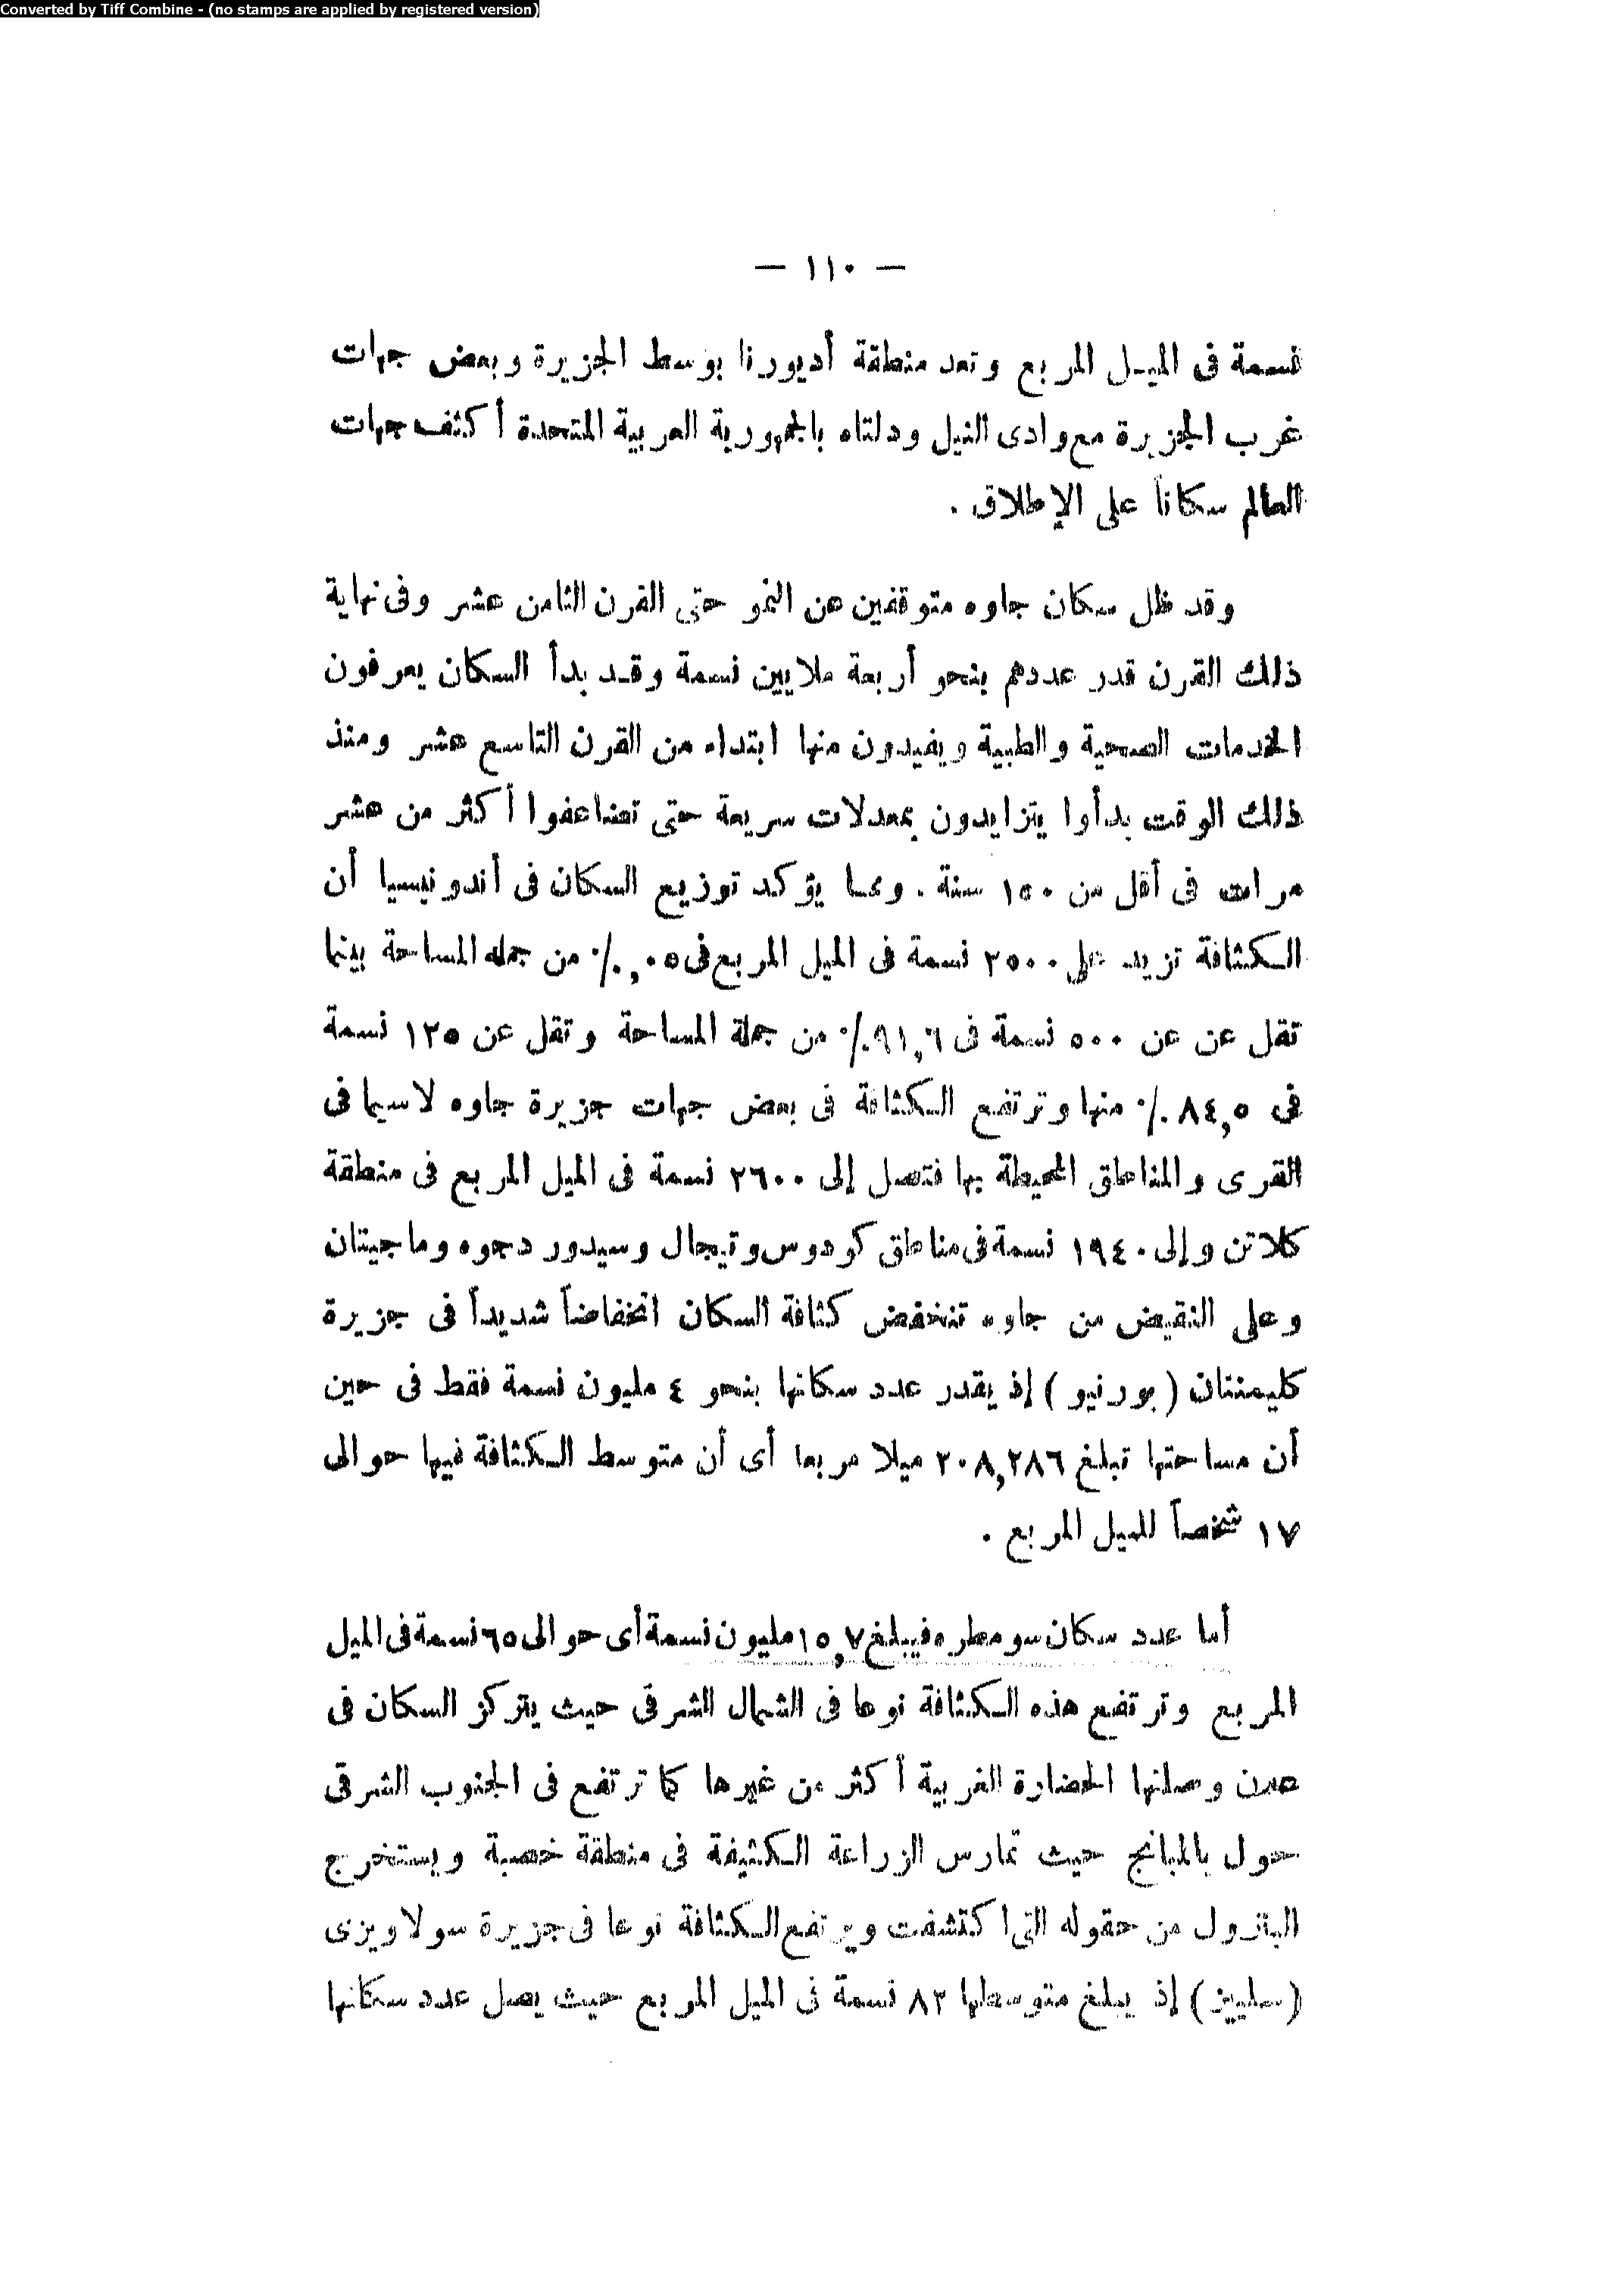 Converted by Tiff Combine - (no stamps are applied by registered version)
— ١١٠ —
نسمة فى الميـل المربع وتعد منطقة أديورنا بوسط الجزيرة وبعض جهات
غرب الجزيرة مع وادى النيل ودلتاه بالجمهورية العربية المتحدة أكثف جهات
العالم سكاناً على الإطلاق .
وقد ظل سكان جاوه متوقفين عن النمو حتى القرن الثامن عشر وفى نهاية
ذلك القرن قدر عددهم بنحو أربعة ملايين نسمة وقـد بدأ السكان يعرفون
الخدمات الصحية والطبية ويفيدون منها ابتداء من القرن التاسع عشر ومنذ
ذلك الوقت بدأوا يتزايدون بمعدلات سريعة حتى تضاعفوا أكثر من عشر
مرات فى أقل من ١٥٠ سنة . ومما يؤكد توزيع السكان فى أندونيسيا أن
الكثافة تزيد على ٢٥٠٠ نسمة فى الميل المربع فى ٠,٠٥٪ من جملة المساحة بينما
تقل عن عن ٥٠٠ نسمة فى ٩١,٦٪ من جملة المساحة وتقل عن ١٢٥ نسمة
فى ٨٤,٥٪ منها وترتفع الكثافة فى بعض جهات جزيرة جاوه لاسيما فى
القرى والمناطق المحيطة بها فتصل إلى ٢٦٠٠ نسمة فى الميل المربع فى منطقة
كلاتن وإلى ١٩٤٠ نسمة فى مناطق كودوس وتيجال وسيدور دجوه وماجيتان
وعلى النقيض من جاوه تنخفض كثافة السكان انخفاضاً شديداً فى جزيرة
كليمنتان ( بورنيو ) إذ يقدر عدد سكانها بنحو ٤ مليون نسمة فقط فى حين
أن مساحتها تبلغ ٢٠٨,٢٨٦ ميلا مربعا أى أن متوسط الكثافة فيها حوالى
١٧ شخصاً للميل المربع .
أما عدد سكان سومطره فيبلغ ١٥,٧ مليون نسمة أى حوالى ٦٥ نسمة فى الميل
المربع وترتفع هذه الكثافة نوعا فى الشمال الشرقى حيث يتركز السكان فى
مدن وصلتها الحضارة الغربية أكثر من غيرها كما ترتفع فى الجنوب الشرقى
حول بالمبانج حيث تمارس الزراعة الكثيفة فى منطقة خصبة ويستخرج
البترول من حقوله التى اكتشفت وترتفع الكثافة نوعا فى جزيرة سولاويزى
(سليبز) إذ يبلغ متوسطها ٨٣ نسمة فى الميل المربع حيث يصل عدد سكانها